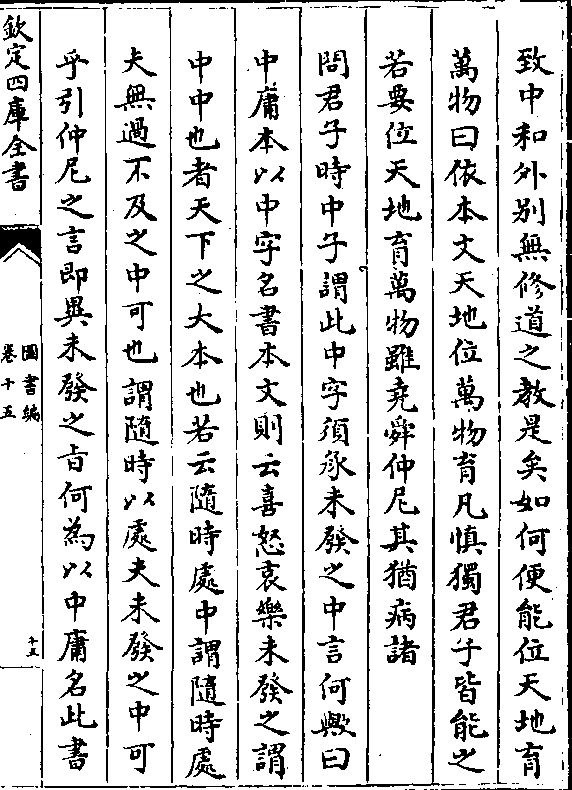 致中和外别無修道之教是矣如何便能位天地育
萬物曰依本文天地位萬物育凡慎獨君子皆能之
若要位天地育萬物雖堯舜仲尼其猶病諸
問君子時中子謂此中字須承未發之中言何歟曰
中庸本以中字名書本文則云喜怒哀樂未發之謂
中中也者天下之大本也若云隨時處中謂隨時處
夫無過不及之中可也謂隨時以處夫未發之中可
乎引仲尼之言即異未發之旨何為以中庸名此書
欽定四庫全書
圖書編
卷十五
十五